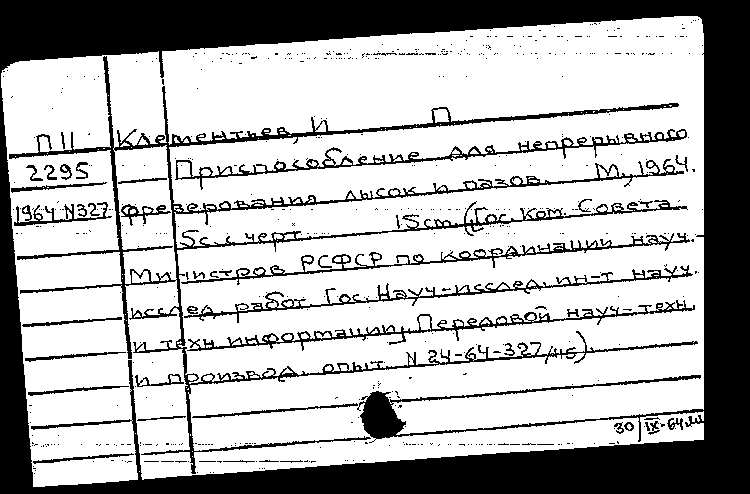 П11 Клементьев, И П
2295 Приспособление для непрерывного
1964 N327 фрезерования лысок и пазов. М., 1964.
5с. с черт. 15см. (Гос. Ком. Совета
Министров РСФСР по координации науч.-
исслед. работ. Гос. Науч-исслед. ин-т науч.
и техн информации. Передовой науч-техн.
и производ. опыт. N 24-64-327/116).
30/IX-64